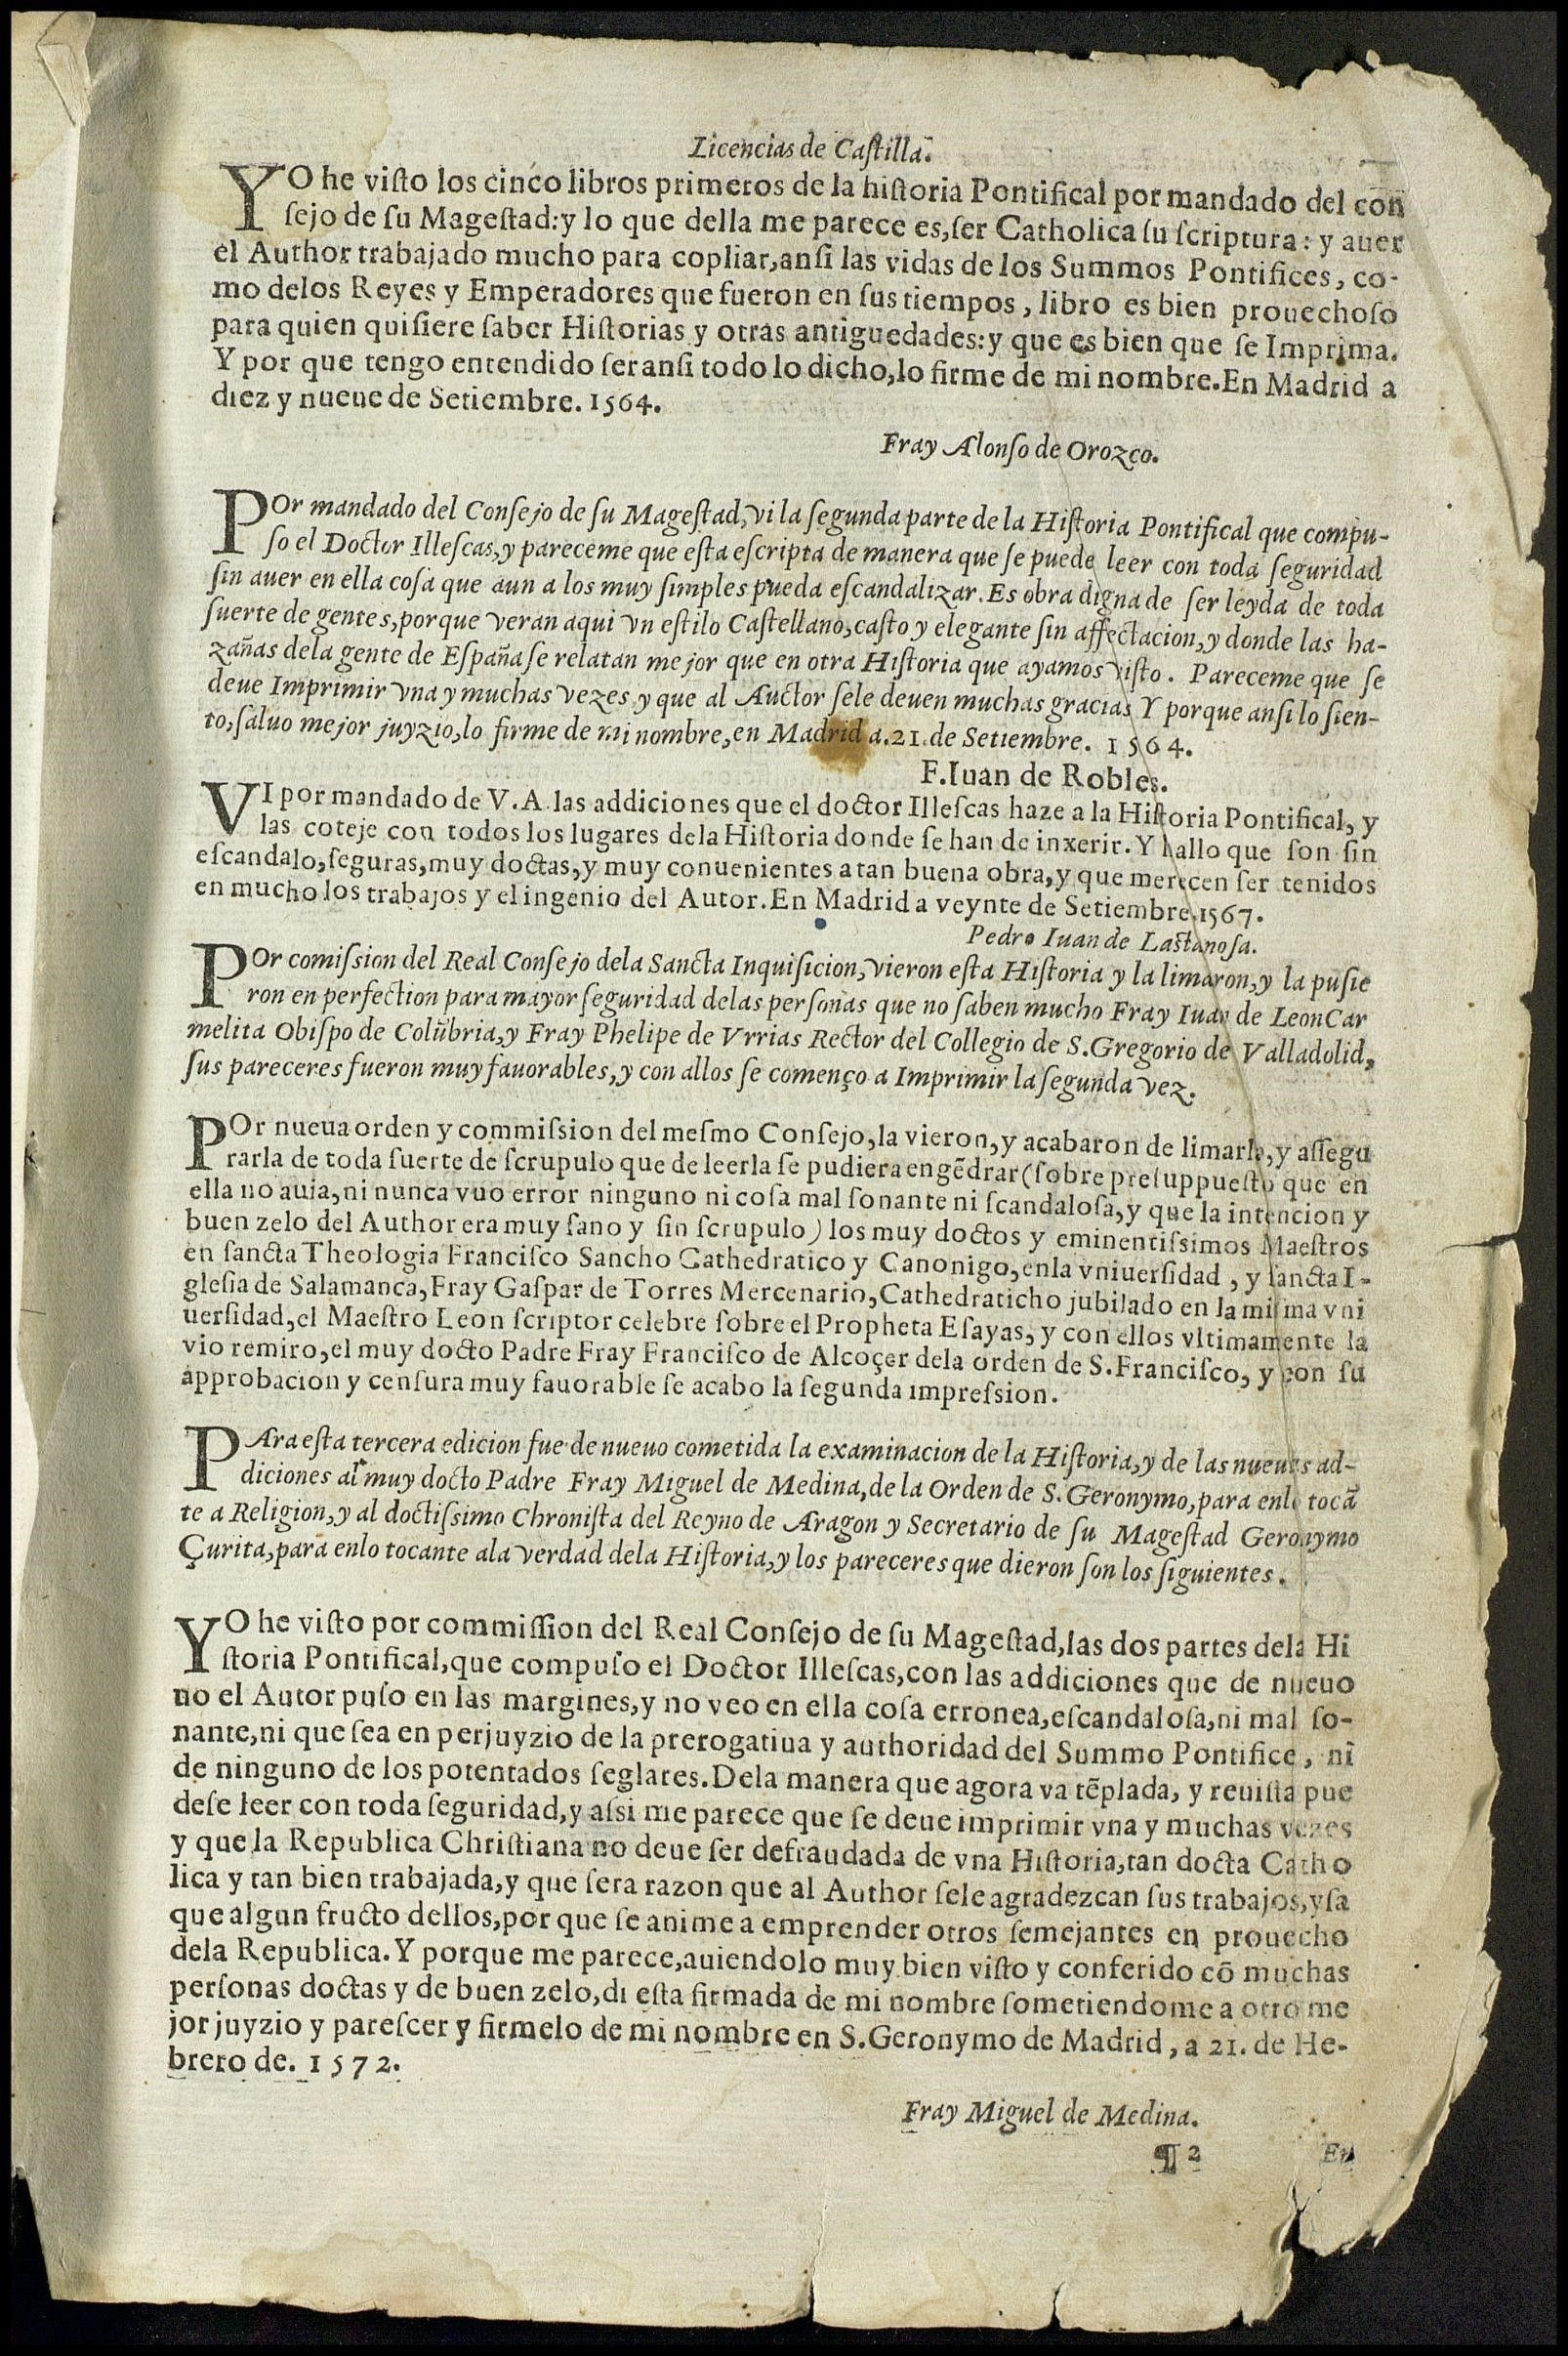 Licencias de Castilla.
YO he visto los cinco libros primeros de la historia Pontifical por mandado del con
sejo de su Magestad: y lo que della me parece es, ser Catholica su scriptura: y auer
el Author trabajado mucho para copliar, ansi las vidas de los Summos Pontifices, co-
mo delos Reyes y Emperadores que fueron en sus tiempos, libro es bien prouechoso
para quien quisiere saber Historias y otras antiguedades: y que es bien que se Imprima.
Y por que tengo entendido ser ansi todo lo dicho, lo firme de mi nombre. En Madrid a
diez y nueue de Setiembre. 1564.
Fray Alonso de Orozco.
POr mandado del Consejo de su Magestad, vi la segunda parte de la Historia Pontifical que compu-
so el Doctor Illescas, y pareceme que esta escripta de manera que se puede leer con toda seguridad
sin auer en ella cosa que aun a los muy simples pueda escandalizar. Es obra digna de ser leyda de toda
suerte de gentes, porque veran aqui vn estilo Castellano, casto y elegante sin affectacion, y donde las ha-
zañas dela gente de España se relatan mejor que en otra Historia que ayamos visto. Pareceme que se
deue Imprimir vna y muchas vezes y que al Auctor sele deuen muchas gracias Y porque ansi lo sien-
to, saluo mejor juyzio, lo firme de mi nombre, en Madrid a. 21. de Setiembre. 1564.
F. Iuan de Robles.
VI por mandado de V. A. las addiciones que el doctor Illescas haze a la Historia Pontifical, y
las coteje con todos los lugares dela Historia donde se han de inxerir. Y hallo que son sin
escandalo, seguras, muy doctas, y muy conuenientes a tan buena obra, y que merecen ser tenidos
en mucho los trabajos y el ingenio del Autor. En Madrid a veynte de Setiembre. 1567.
Pedro Iuan de Lastanosa.
POr comission del Real Consejo dela Sancta Inquisicion, vieron esta Historia y la limaron, y la pusie
ron en perfection para mayor seguridad delas personas que no saben mucho Fray Iuan de Leon Car
melita Obispo de Colũbria, y Fray Phelipe de Vrrias Rector del Collegio de S. Gregorio de Valladolid,
sus pareceres fueron muy fauorables, y con allos se començo a Imprimir la segunda vez.
POr nueua orden y commission del mesmo Consejo, la vieron, y acabaron de limarla, y assegu
rarla de toda suerte de scrupulo que de leerla se pudiera engẽdrar (sobre presuppuesto que en
ella no auia, ni nunca vuo error ninguno ni cosa mal sonante ni scandalosa, y que la intencion y
buen zelo del Author era muy sano y sin scrupulo) los muy doctos y eminentissimos Maestros
en sancta Theologia Francisco Sancho Cathedratico y Canonigo, enla vniuersidad, y sancta I-
glesia de Salamanca, Fray Gaspar de Torres Mercenario, Cathedraticho jubilado en la misma vni
uersidad, el Maestro Leon scriptor celebre sobre el Propheta Esayas, y con ellos vltimamente la
vio remiro, el muy docto Padre Fray Francisco de Alcoçer dela orden de S. Francisco, y con su
approbacion y censura muy fauorable se acabo la segunda impression.
PAra esta tercera edicion fue de nueuo cometida la examinacion de la Historia, y de las nueuas ad-
diciones al muy docto Padre Fray Miguel de Medina, de la Orden de S. Geronymo, para enlo tocã
te a Religion, y al doctissimo Chronista del Reyno de Aragon y Secretario de su Magestad Geronymo
Çurita, para enlo tocante ala verdad dela Historia, y los pareceres que dieron son los siguientes.
YO he visto por commission del Real Consejo de su Magestad, las dos partes dela Hi
storia Pontifical, que compuso el Doctor Illescas, con las addiciones que de nueuo
no el Autor puso en las margines, y no veo en ella cosa erronea, escandalosa, ni mal so-
nante, ni que sea en perjuyzio de la prerogatiua y authoridad del Summo Pontifice, ni
de ninguno de los potentados seglares. Dela manera que agora va tẽplada, y reuista pue
dese leer con toda seguridad, y assi me parece que se deue imprimir vna y muchas vezes
y que la Republica Christiana no deue ser defraudada de vna Historia, tan docta Catho
lica y tan bien trabajada, y que sera razon que al Author sele agradezcan sus trabajos, y sa
que algun fructo dellos, por que se anime a emprender otros semejantes en prouecho
dela Republica. Y porque me parece, auiendolo muy bien visto y conferido cõ muchas
personas doctas y de buen zelo, di esta firmada de mi nombre sometiendome a otro me
jor juyzio y parescer y firmelo de mi nombre en S. Geronymo de Madrid, a 21. de He-
brero de. 1572.
Fray Miguel de Medina.
¶ 2 En